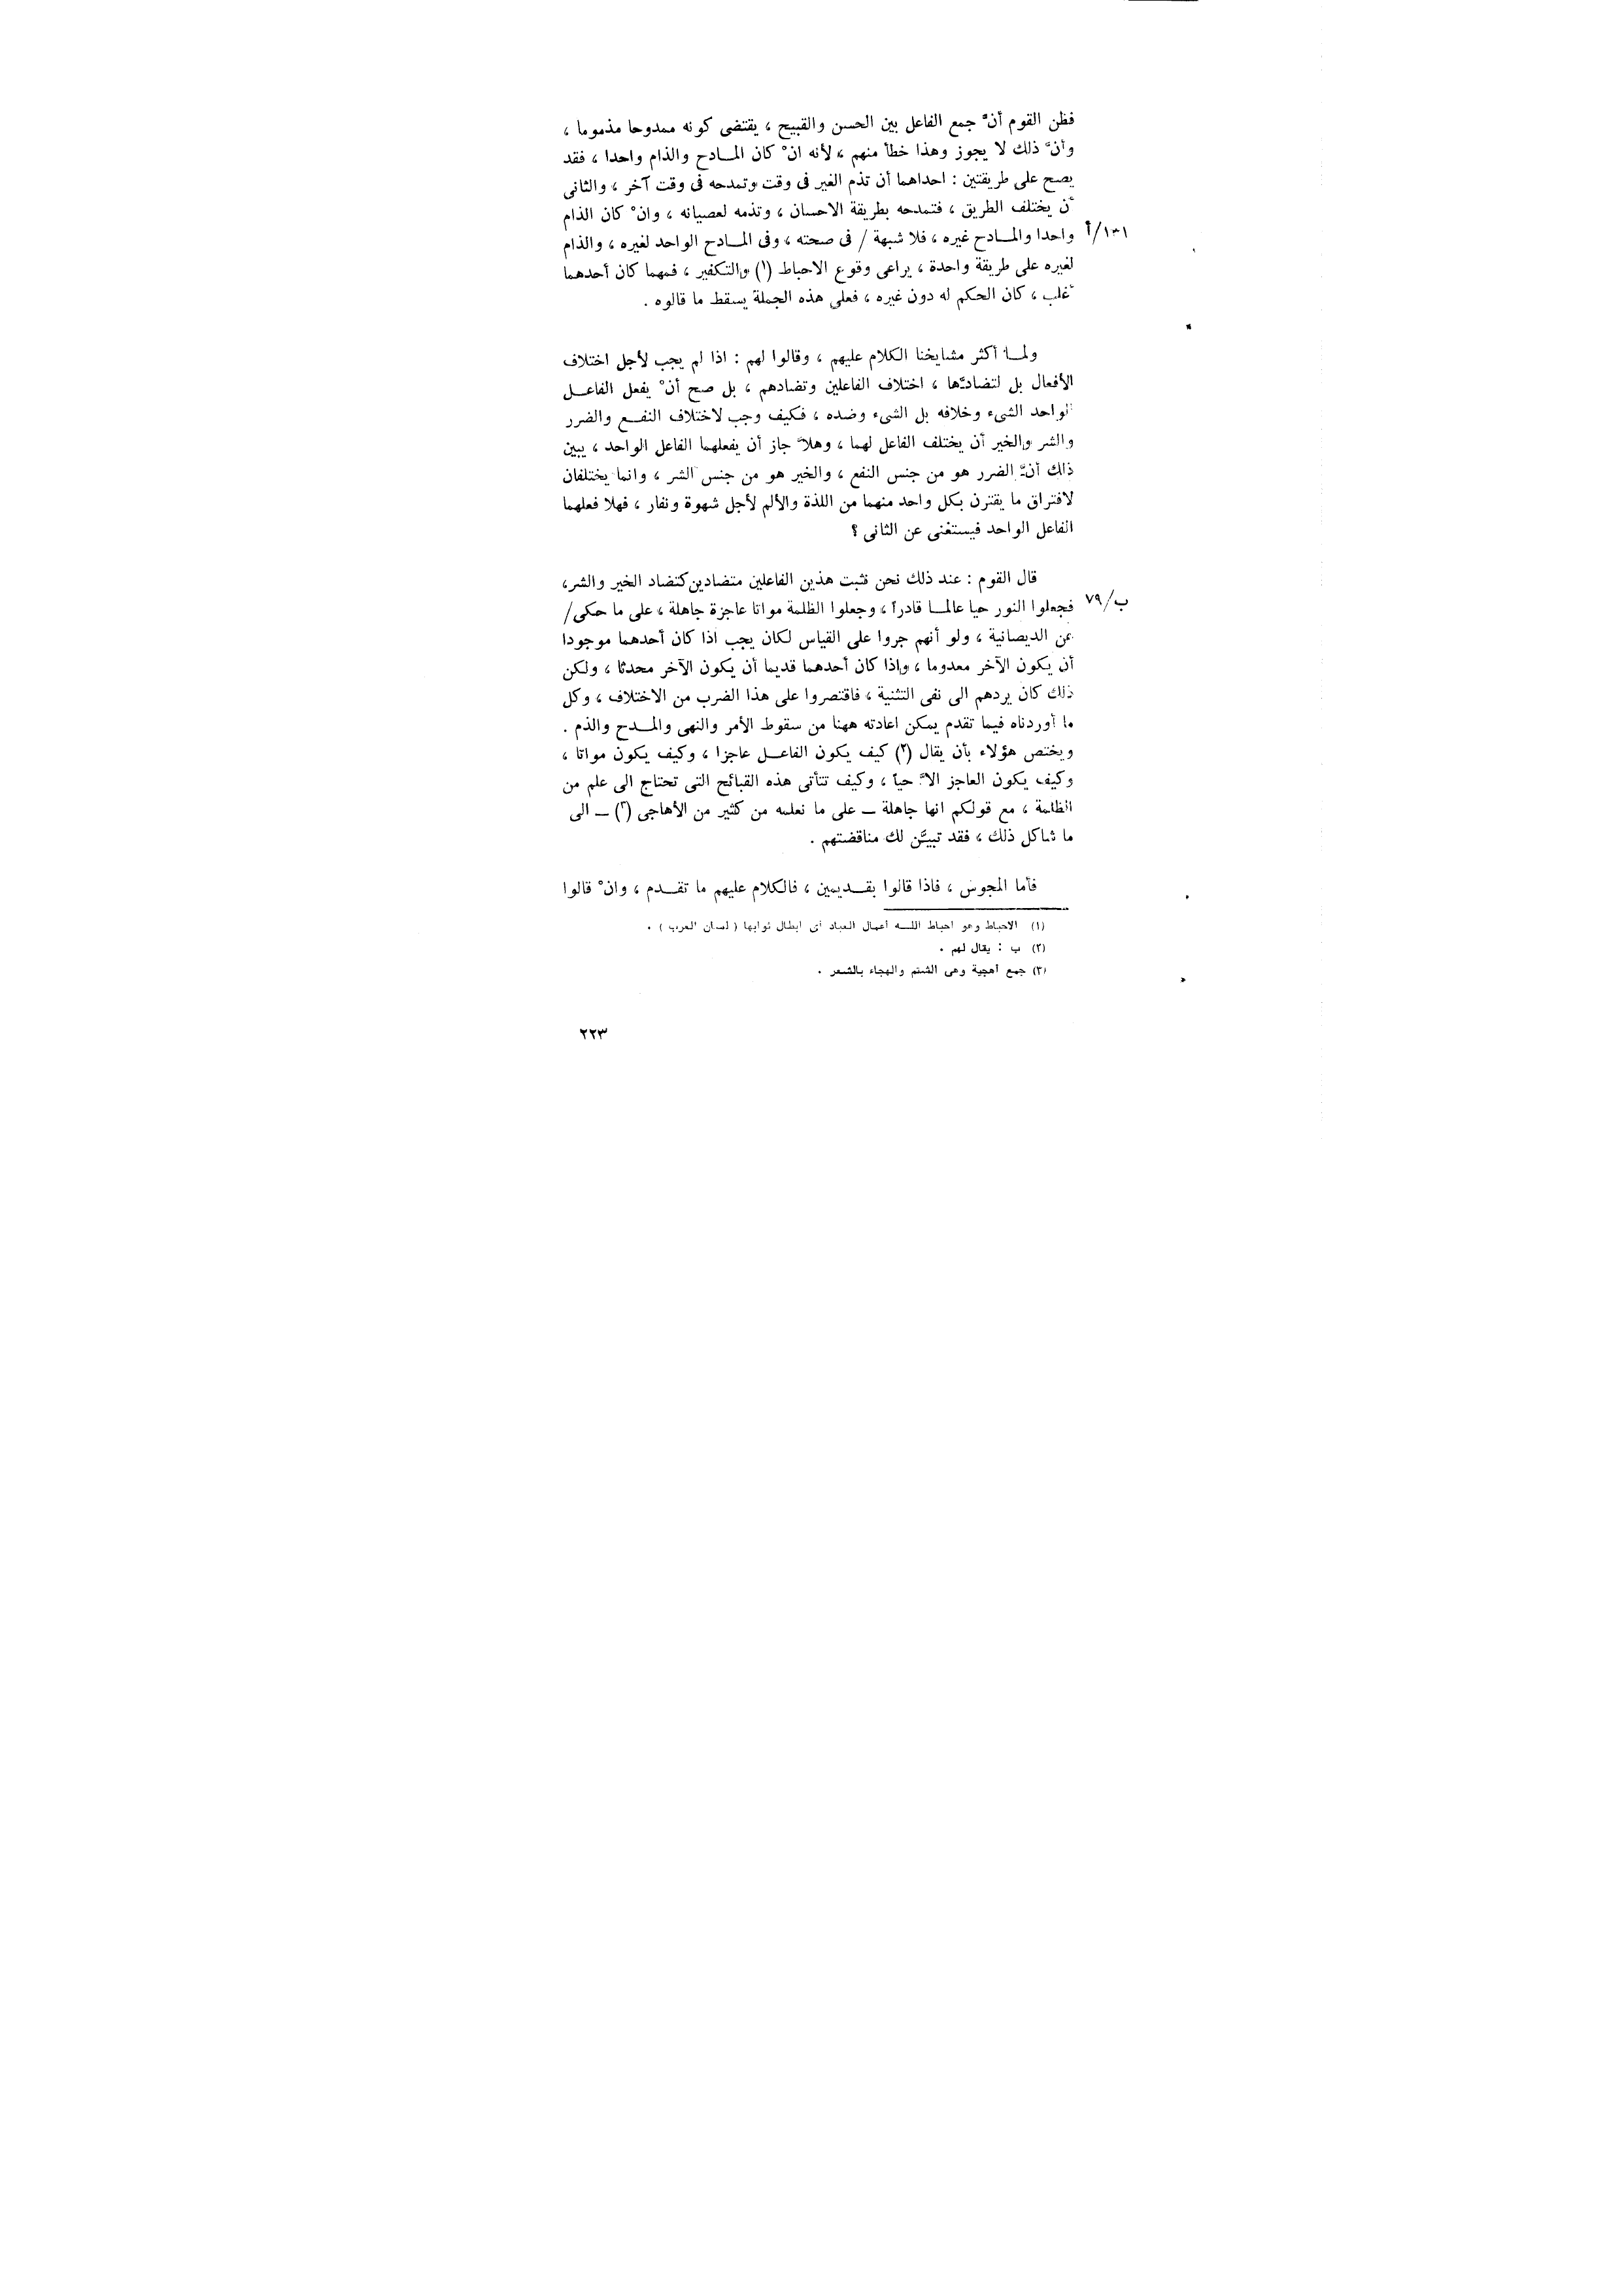 فظن القوم أنَّ جمع الفاعل بين الحسن والقبيح ، يقتضى كونه ممدوحا مذموما ،
وأنَّ ذلك لا يجوز وهذا خطأ منهم ، لأنه انْ كان المادح والذام واحدا ، فقد
يصح على طريقتين : احداهما أن تذم الغير فى وقت وتمدحه فى وقت آخر ، والثانى
أن يختلف الطريق ، فتمدحه بطريقة الاحسان ، وتذمه لعصيانه ، وانْ كان الذام
واحدا والمادح غيره ، فلا شبهة / فى صحته ، وفى المادح الواحد لغيره ، والذام
١٣١/أ
لغيره على طريقة واحدة ، يراعى وقوع الاحباط (١) والتكفير ، فمهما كان أحدهما
أغلب ، كان الحكم له دون غيره ، فعلى هذه الجملة يسقط ما قالوه .
ولما أكثر مشايخنا الكلام عليهم ، وقالوا لهم : اذا لم يجب لأجل اختلاف
الأفعال بل لتضادَّها ، اختلاف الفاعلين وتضادهم ، بل صح أنْ يفعل الفاعل
الواحد الشىء وخلافه بل الشىء وضده ، فكيف وجب لاختلاف النفع والضرر
والشر والخير أن يختلف الفاعل لهما ، وهلاَّ جاز أن يفعلهما الفاعل الواحد ، يبين
ذلك أنَّ الضرر هو من جنس النفع ، والخير هو من جنس الشر ، وانما يختلفان
لافتراق ما يقترن بكل واحد منهما من اللذة والألم لأجل شهوة ونفار ، فهلا فعلهما
الفاعل الواحد فيستغنى عن الثانى ؟
قال القوم : عند ذلك نحن نثبت هذين الفاعلين متضادين كتضاد الخير والشر،
فجعلوا النور حيا عالما قادراً ، وجعلوا الظلمة مواتا عاجزة جاهلة ، على ما حكى/
ب/٧٩
عن الديصانية ، ولو أنهم جروا على القياس لكان يجب اذا كان أحدهما موجودا
أن يكون الآخر معدوما ، واذا كان أحدهما قديما أن يكون الآخر محدثا ، ولكن
ذلك كان يردهم الى نفى التثنية ، فاقتصروا على هذا الضرب من الاختلاف ، وكل
ما أوردناه فيما تقدم يمكن اعادته ههنا من سقوط الأمر والنهى والمدح والذم .
ويختص هؤلاء بأن يقال (٢) كيف يكون الفاعل عاجزا ، وكيف يكون مواتا ،
وكيف يكون العاجز الاَّ حياً ، وكيف تتأتى هذه القبائح التى تحتاج الى علم من
الظلمة ، مع قولكم انها جاهلة ــ على ما نعلمه من كثير من الأهاجى (٣) ــ الى
ما شاكل ذلك ، فقد تبيَّن لك مناقضتهم .
فأما المجوس ، فاذا قالوا بقديمين ، فالكلام عليهم ما تقدم ، وانْ قالوا
(١) الاحباط وهو احباط الله أعمال العباد أى ابطال ثوابها ( لسان العرب ) .
(٢) ب : يقال لهم .
(٣) جمع أهجية وهى الشتم والهجاء بالشعر .
٢٢٣